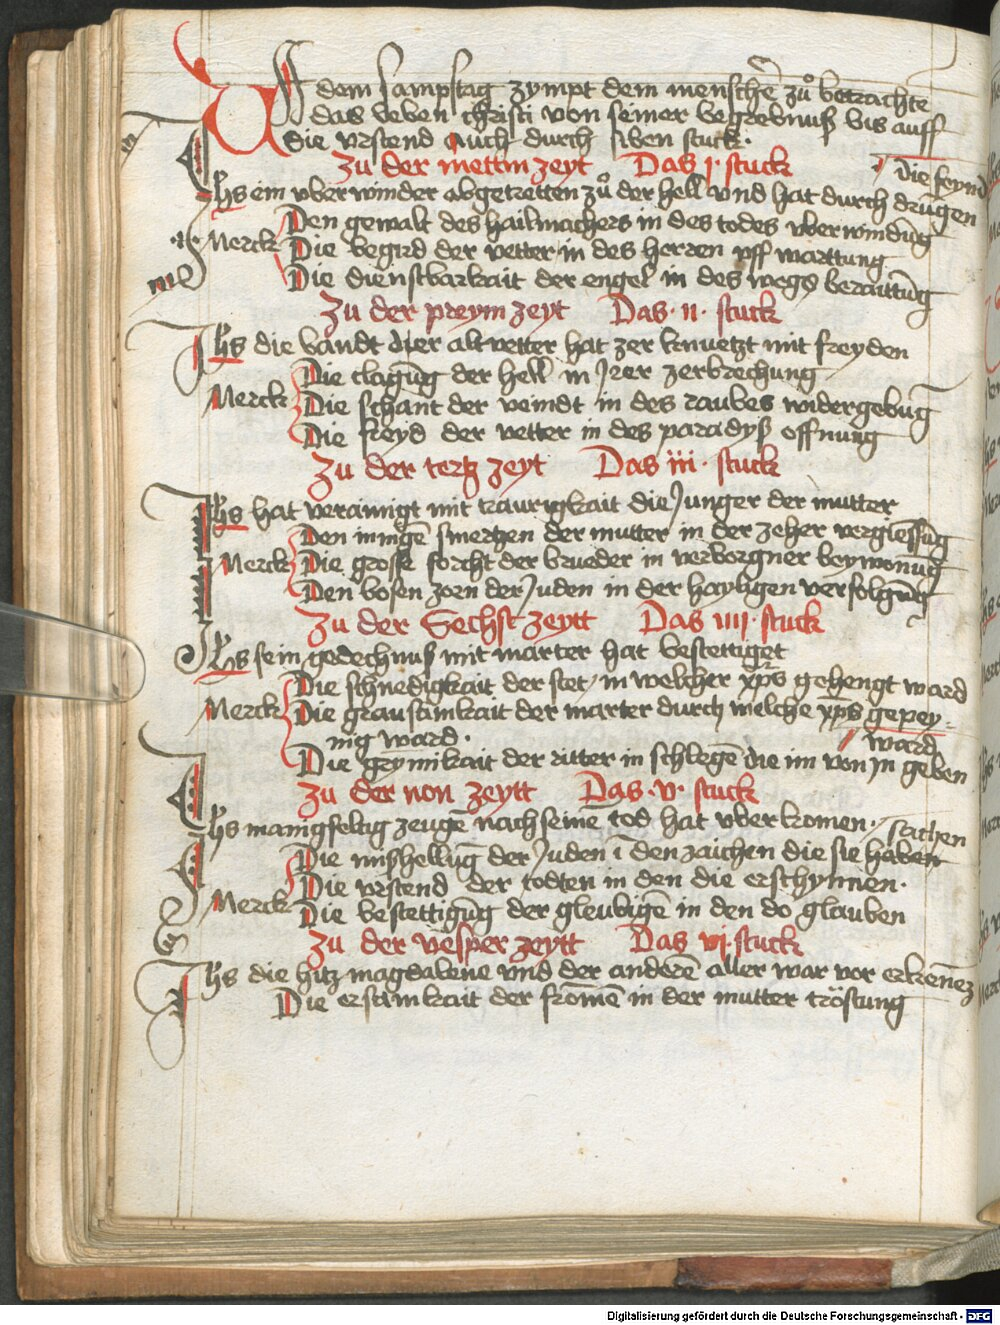 An dem sampstag zympt dem menschē zuͦ betrachte
das leben christi von seiner begrebnuß bis auff
die vrstend Auch durch siben stuck·
Zu der mettin zeyt Das j· stuck
die feynd
Jhs ein vberwinder abgetretten zuͦ der hell vnd hat durch drūgen
Den gewalt des hailmachers in des todes vberwindūg
Merck Die begird der vetter in des herren vff warttung
Die dienstbarkait der engel in des wegs beraittūg
Zu der preym zeyt Das · ii · stuck
Jhs die bandt der altvetter hat zer knuetzt mit freyden
Die clagūg der hell in Jrer zerbrechung
Merck Die schant der veindt in des raubes widergebūg
Die freyd der vetter in des paradyß offnung
Zu der tertz zeyt Das iii · stuck
Jhs hat verainigt mit traurigkait die Junger der mutter
Den iningē smertzen der mutter in der zeher vergiessūg
Merck Die grosse forcht der brueder in verborgner beywonūg
Den bosen zorn der Juden in der hayligen verfolgūg
Zu der Sechst zeytt Das iiij · stuck
Jhs sein gedechnuß mit marter hat bestettiget
Die schnedigkait der stet / in welcher xp̄s gehengt ward
Merck Die graustimkait der marter durch welche xp̄s gepey-
nig ward · ward
Die grymikait der ritter in schlegē die im von Jn geben
Zu der non zeytt Das · v · stuck
Jhs manigfeltig zeugē nach seinē tod hat vberkomen · / sachen
Die mishellūg der Juden i den zaichen die sie haben
Die vrstend der todten in den die erschynnen ·
Merck Die bestettigūg der gleubigē in den do glauben
Zu der vesper zeytt Das vi · stuck
Jhs die hitz magdalene vnd der anderē aller war vor erkenēz
Die ersamkait der fromē in der mutter tröstung
Digitalisierung gefördert durch die Deutsche Forschungsgemeinschaft - DFG